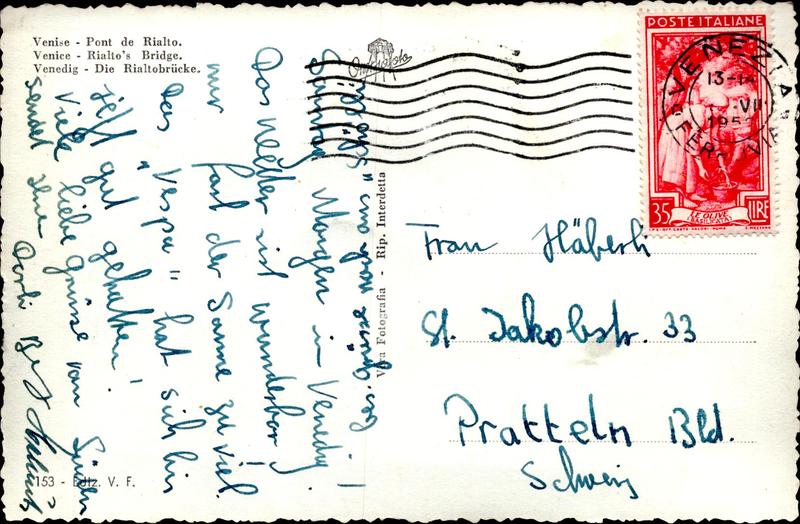 Venise - Pont de Rialto.
Venice - Rialto's Bridge.
Venedig - Die Rialtobrücke.
Sonntag Morgen in Venedig!
Das Wetter ist wunderbar!
nur fast der Sonne zu viel.
Das "Vespa" hat sich bis
jetzt gut gehalten!
Viele liebe Grüsse vom Süden
sendet Ihnen Dorli
Vera Fotografia - Rip. Interdetta
153 - Ediz. V. F.
POSTE ITALIANE
VENEZIA
13-14
VII
FERROVIA
35 LE OLIVE LIRE
(BASILICATA)
I.P.S. OFF. CARTE-VALORI - ROMA
C. MEZZANA
Frau Häberli
St. Jakobstr. 33
Pratteln Bld.
Schweiz